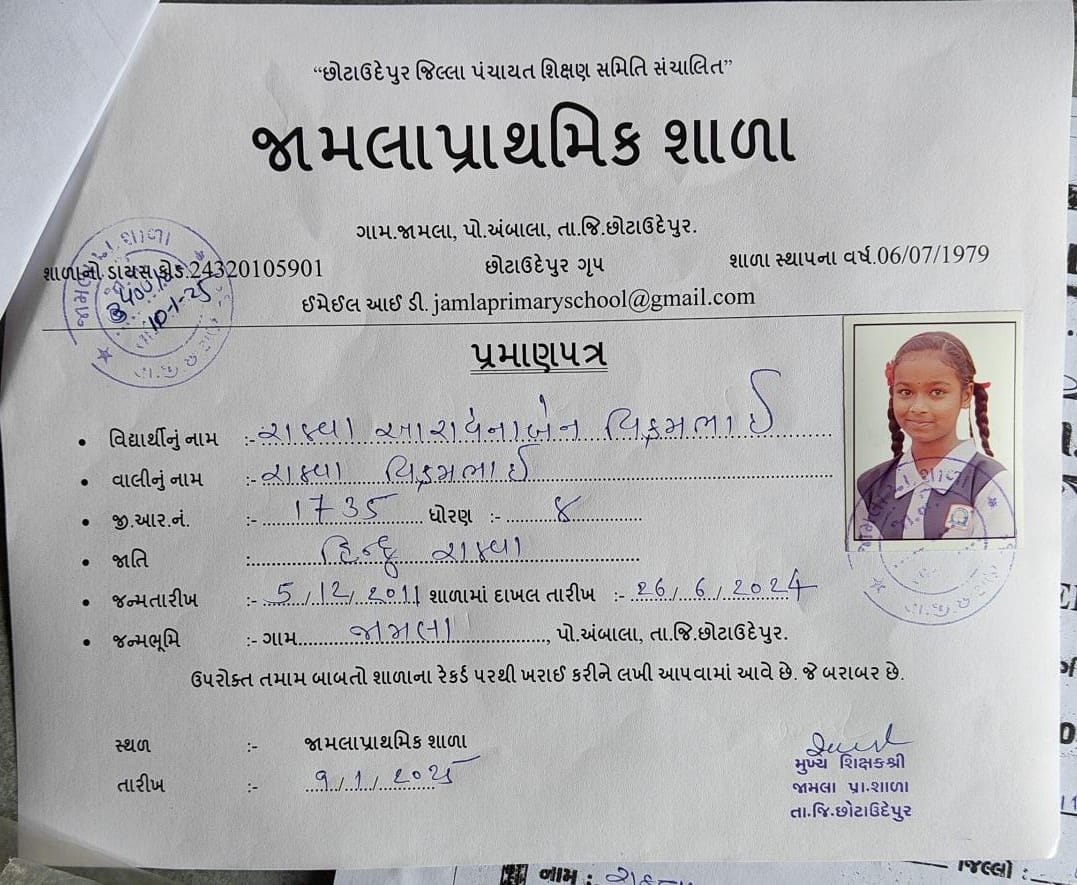 “છોટાઉદેપુર જિલ્લા પંચાયત શિક્ષણ સમિતિ સંચાલિત”
જામલાપ્રાથમિક શાળા
ગામ.જામલા, પો.અંબાલા, તા.જિ.છોટાઉદેપુર.
શાળાનો ડાયસ કોડ.24320105901 છોટાઉદેપુર ગૃપ શાળા સ્થાપના વર્ષ.06/07/1979
10-1-25
ઈમેઈલ આઈ ડી. jamlaprimaryschool@gmail.com
પ્રમાણપત્ર
• વિદ્યાર્થીનું નામ :- રાઠવા આરાધનાબેન વિક્રમભાઈ
• વાલીનું નામ :- રાઠવા વિક્રમભાઈ
• જી.આર.નં. :- 1735 ધોરણ :- ૪
• જાતિ : હિન્દુ રાઠવા
• જન્મતારીખ :- 5/12/2011 શાળામાં દાખલ તારીખ :- 26/6/2024
• જન્મભૂમિ :- ગામ જામલા, પો.અંબાલા, તા.જિ.છોટાઉદેપુર.
ઉપરોક્ત તમામ બાબતો શાળાના રેકર્ડ પરથી ખરાઈ કરીને લખી આપવામાં આવે છે. જે બરાબર છે.
સ્થળ :- જામલાપ્રાથમિક શાળા
તારીખ :- 9/1/2025
મુખ્ય શિક્ષકશ્રી
જામલા પ્રા.શાળા
તા.જિ.છોટાઉદેપુર
નામ :
જિલ્લો :